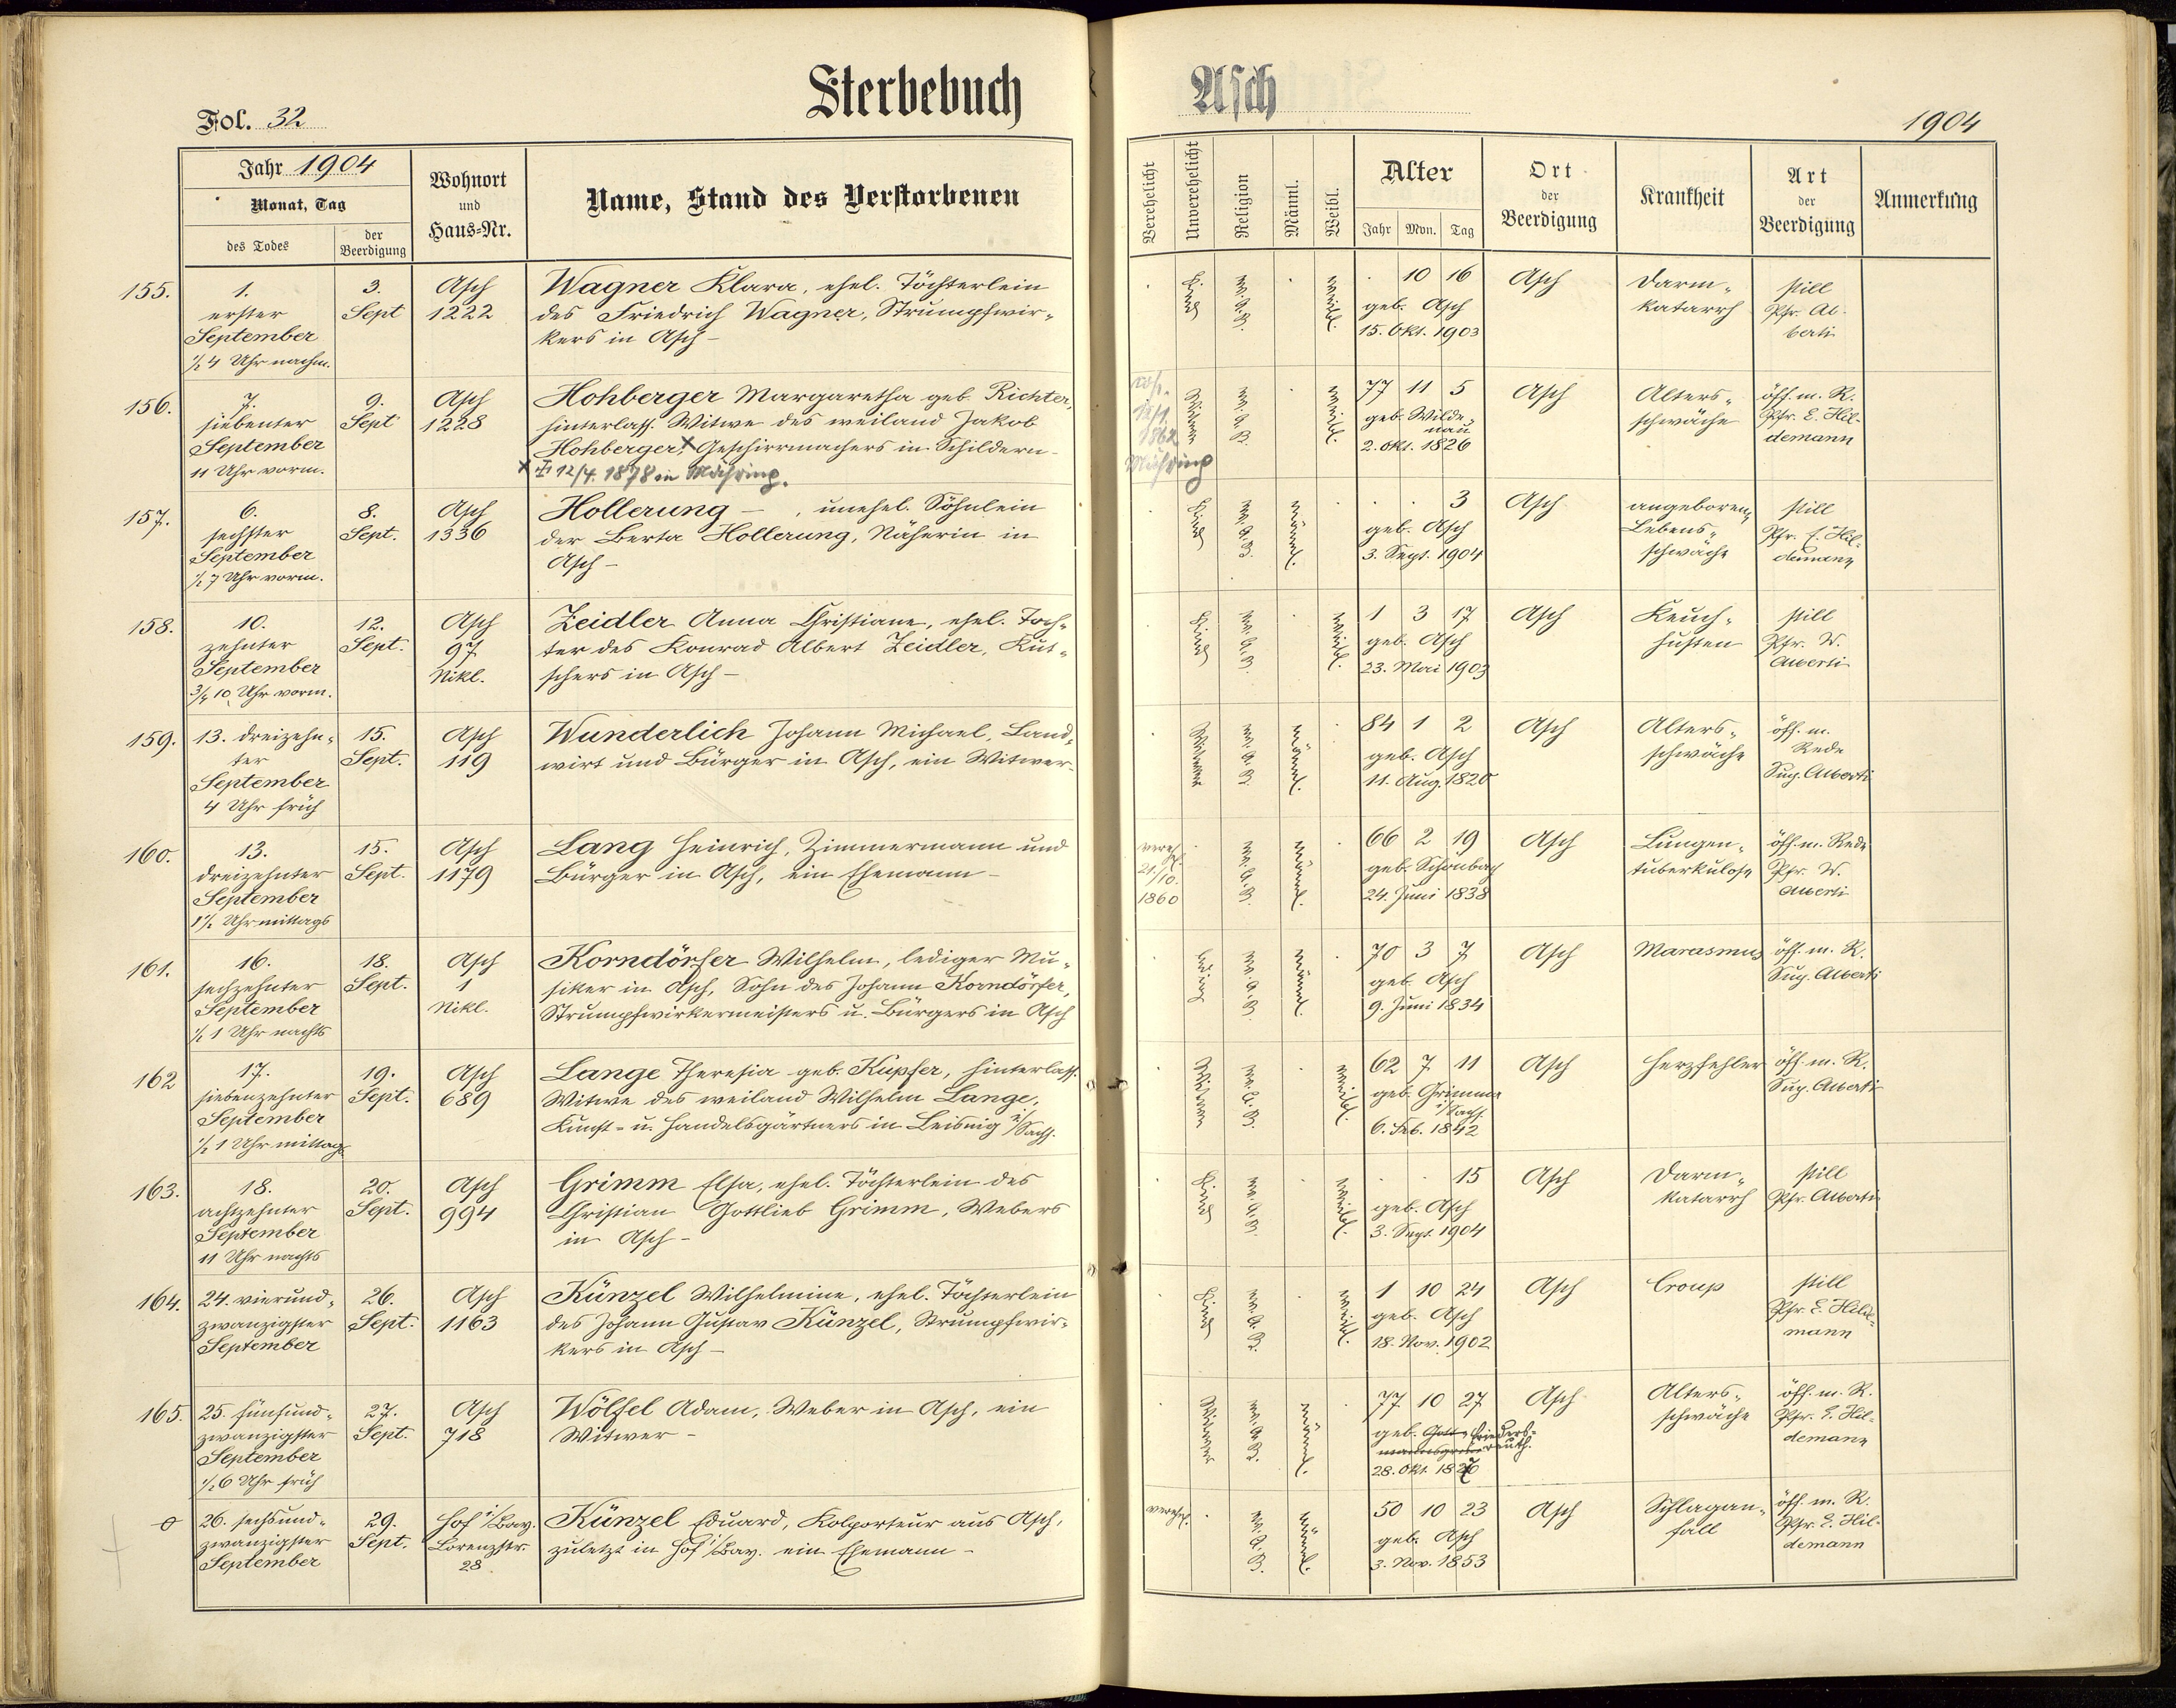 Sterbebuch
Asch
Fol. 32
1904
Jahr 1904
Monat, Tag
des Todes
der Beerdigung
Wohnort
und
Haus-Nr.
Name, Stand des Verstorbenen
Verehelicht
Unverehelicht
Religion
Männl.
Weibl.
Alter
Jahr
Mon.
Tag
Ort
der
Beerdigung
Krankheit
Art
der
Beerdigung
Anmerkung
155. 1. 3. Asch Wagner Klara, ehel. Töchterlein
erster Sept 1222 des Friedrich Wagner, Strumpfwir-
September kers in Asch –
1/2 4 Uhr nachm.
Kind
weibl.
10 16 Asch Darm- still
geb. Asch katarrh Pfr. Al-
15. Okt. 1903 berti
156. 7. 9. Asch Hohberger Margaretha geb. Richter,
siebenter Sept 1228 hinterlass. Witwe des weiland Jakob
September Hohberger, x Geschirrmachers in Schildern –
11 Uhr vorm. x 12/4. 1878 in Mähring.
1862
Mähring
Witwe
weibl.
77 11 5 Asch Alters- öff. m. R.
geb. Wilde- schwäche Pfr. E. Hil-
nau demann
2. Okt. 1826
157. 6. 8. Asch Hollerung – , unehel. Söhnlein
sechster Sept. 1336 der Berta Hollerung, Näherin in
September Asch –
1/2 7 Uhr vorm.
Kind
männl.
3 Asch angeborene still
geb. Asch Lebens- Pfr. E. Hil-
3. Sept. 1904 schwäche demann
158. 10. 12. Asch Zeidler Anna Christiane, ehel. Toch-
zehnter Sept. 97 ter des Konrad Albert Zeidler, Kut-
September Nikl. schers in Asch –
3/4 10 Uhr vorm.
Kind
weibl.
1 3 17 Asch Keuch- still
geb. Asch husten Pfr. W.
23. Mai 1903 Alberti
159. 13. dreizehn- 15. Asch Wunderlich Johann Michael, Land-
ter Sept. 119 wirt und Bürger in Asch, ein Witwer –
September
4 Uhr früh
Witwer
männl.
84 1 2 Asch Alters- öff. m.
geb. Asch schwäche Rede
11. Aug. 1820 Sup. Alberti
160. 13. 15. Asch Lang Heinrich, Zimmermann und
dreizehnter Sept. 1179 Bürger in Asch, ein Ehemann –
September
Uhr mittags
verehl.
21/10.
1860
männl.
66 2 19 Asch Lungen- öff. m. Rede
geb. Schönbach tuberkulose Pfr. W.
24. Juni 1838 Alberti
161. 16. 18. Asch Korndörfer Wilhelm, lediger Mu-
sechzehnter Sept. 1 siker in Asch, Sohn des Johann Korndörfer,
September Nikl. Strumpfwirkermeisters u. Bürgers in Asch
1/2 1 Uhr nachts
ledig
männl.
70 3 7 Asch Marasmus öff. m. R.
geb. Asch Sup. Alberti
9. Juni 1834
162 17. 19. Asch Lange Theresia geb. Küpfer, hinterlass.
siebenzehnter Sept. 689 Witwe des weiland Wilhelm Lange,
September Kunst- u. Handelsgärtners in Leisnig i/Sachs.
1/2 1 Uhr mittags
Witwe
weibl.
62 7 11 Asch Herzfehler öff. m. R.
geb. Grimma Sup. Alberti
i/Sachs.
6. Feb. 1842
163. 18. 20. Asch Grimm Elsa, ehel. Töchterlein des
achtzehnter Sept. 994 Christian Gottlieb Grimm, Webers
September in Asch –
11 Uhr nachts
Kind
weibl.
15 Asch Darm- still
geb. Asch katarrh Pfr. Alberti
3. Sept. 1904
164. 24. vierund- 26. Asch Künzel Wilhelmine, ehel. Töchterlein
zwanzigster Sept. 1163 des Johann Gustav Künzel, Strumpfwir-
September kers in Asch –
Kind
weibl.
1 10 24 Asch Croup still
geb. Asch Pfr. E. Hilde-
18. Nov. 1902 mann
165. 25. fünfund- 27. Asch Wölfel Adam, Weber in Asch, ein
zwanzigster Sept. 718 Witwer –
September
1/2 6 Uhr früh
Witwer
männl.
77 10 27 Asch Alters- öff. m. R.
geb. Frieders- schwäche Pfr. E. Hil-
reuth. demann
28. Okt.
0 26. sechsund- 29. Hof i/Bay. Künzel Eduard, Kolporteur aus Asch,
zwanzigster Sept. Lorenzstr. zuletzt in Hof i/Bay. ein Ehemann –
September 28.
verehl.
männl.
50 10 23 Asch Schlagan- öff. m. R.
geb. Asch fall Pfr. E. Hil-
3. Nov. 1853 demann